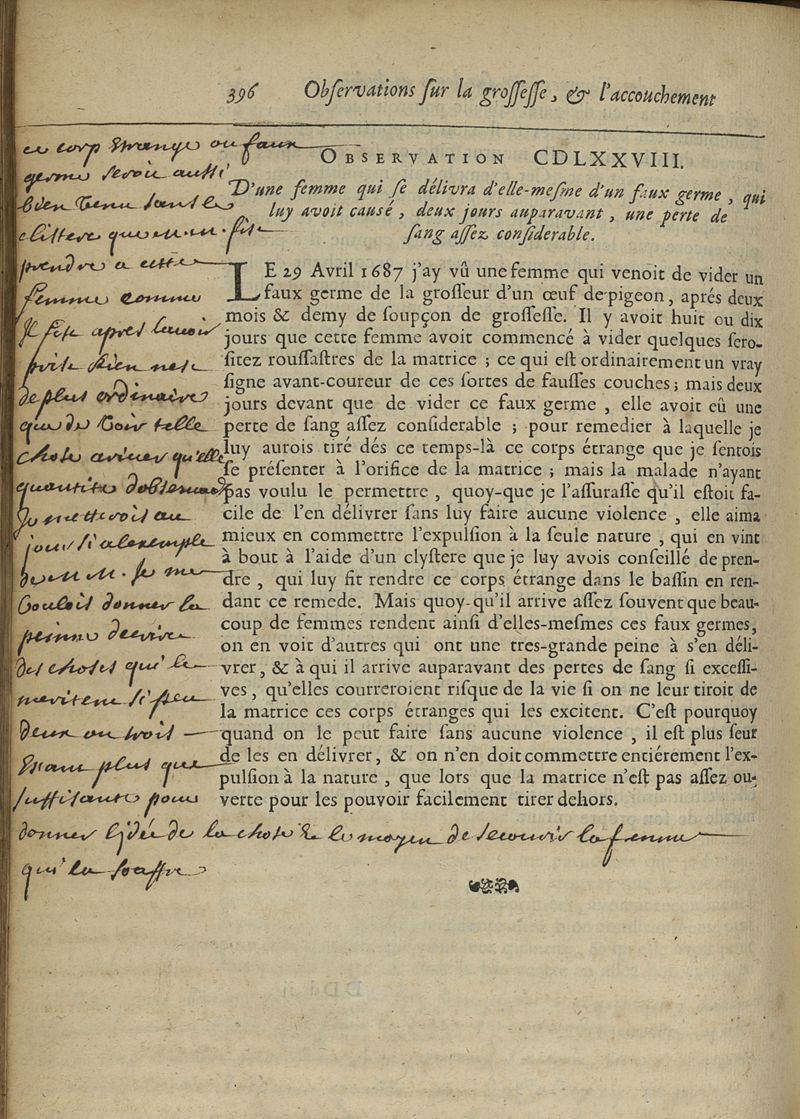 396 Obſervations ſur la groſſeſſe, & l'accouchement
OBSERVATION CDLXXVIII.
D'une femme qui ſe délivra d'elle-meſme d'un faux germe, qui
luy avoit cauſé, deux jours auparavant, une perte de
ſang aſſez conſiderable.
LE 29 Avril 1687 j'ay vû une femme qui venoit de vider un
faux germe de la groſſeur d'un œuf de pigeon, aprés deux
mois & demy de ſoupçon de groſſeſſe. Il y avoit huit ou dix
jours que cette femme avoit commencé à vider quelques ſero-
ſitez rouſſaſtres de la matrice; ce qui eſt ordinairement un vray
ſigne avant-coureur de ces ſortes de fauſſes couches; mais deux
jours devant que de vider ce faux germe, elle avoit eû une
perte de ſang aſſez conſiderable; pour remedier à laquelle je
luy aurois tiré dés ce temps-là ce corps étrange que je ſentois
ſe préſenter à l'orifice de la matrice; mais la malade n'ayant
pas voulu le permettre, quoy-que je l'aſſuraſſe qu'il eſtoit fa-
cile de l'en délivrer ſans luy faire aucune violence, elle aima
mieux en commettre l'expulſion à la ſeule nature, qui en vint
à bout à l'aide d'un clyſtere que je luy avois conſeillé de pren-
dre, qui luy fit rendre ce corps étrange dans le baſſin en ren-
dant ce remede. Mais quoy-qu'il arrive aſſez ſouvent que beau-
coup de femmes rendent ainſi d'elles-meſmes ces faux germes,
on en voit d'autres qui ont une tres-grande peine à s'en déli-
vrer, & à qui il arrive auparavant des pertes de ſang ſi exceſſi-
ves, qu'elles courreroient riſque de la vie ſi on ne leur tiroit de
la matrice ces corps étranges qui les excitent. C'eſt pourquoy
quand on le peut faire ſans aucune violence, il eſt plus ſeur
de les en délivrer, & on n'en doit commettre entiérement l'ex-
pulſion à la nature, que lors que la matrice n'eſt pas aſſez ou-
verte pour les pouvoir facilement tirer dehors.
ce corp étrange ou faux
germe seroit aussi
bien venu sans le
clistere que m.m. fit
prendre a cette
femme comme
il fit apres l'avoir
rien nest
de plus ordinaire
que de voir telle
chose ariver qu'elle
quantité
au
jour si a l'exemple
de m.m. je me
voulois donner la
peinne decrire
des choses qui le
meritent si peu
deux ou trois
estant plus que
suffisante pour
donner l'jdée de la chose & le moyen de secourir la femme
qui la souffre